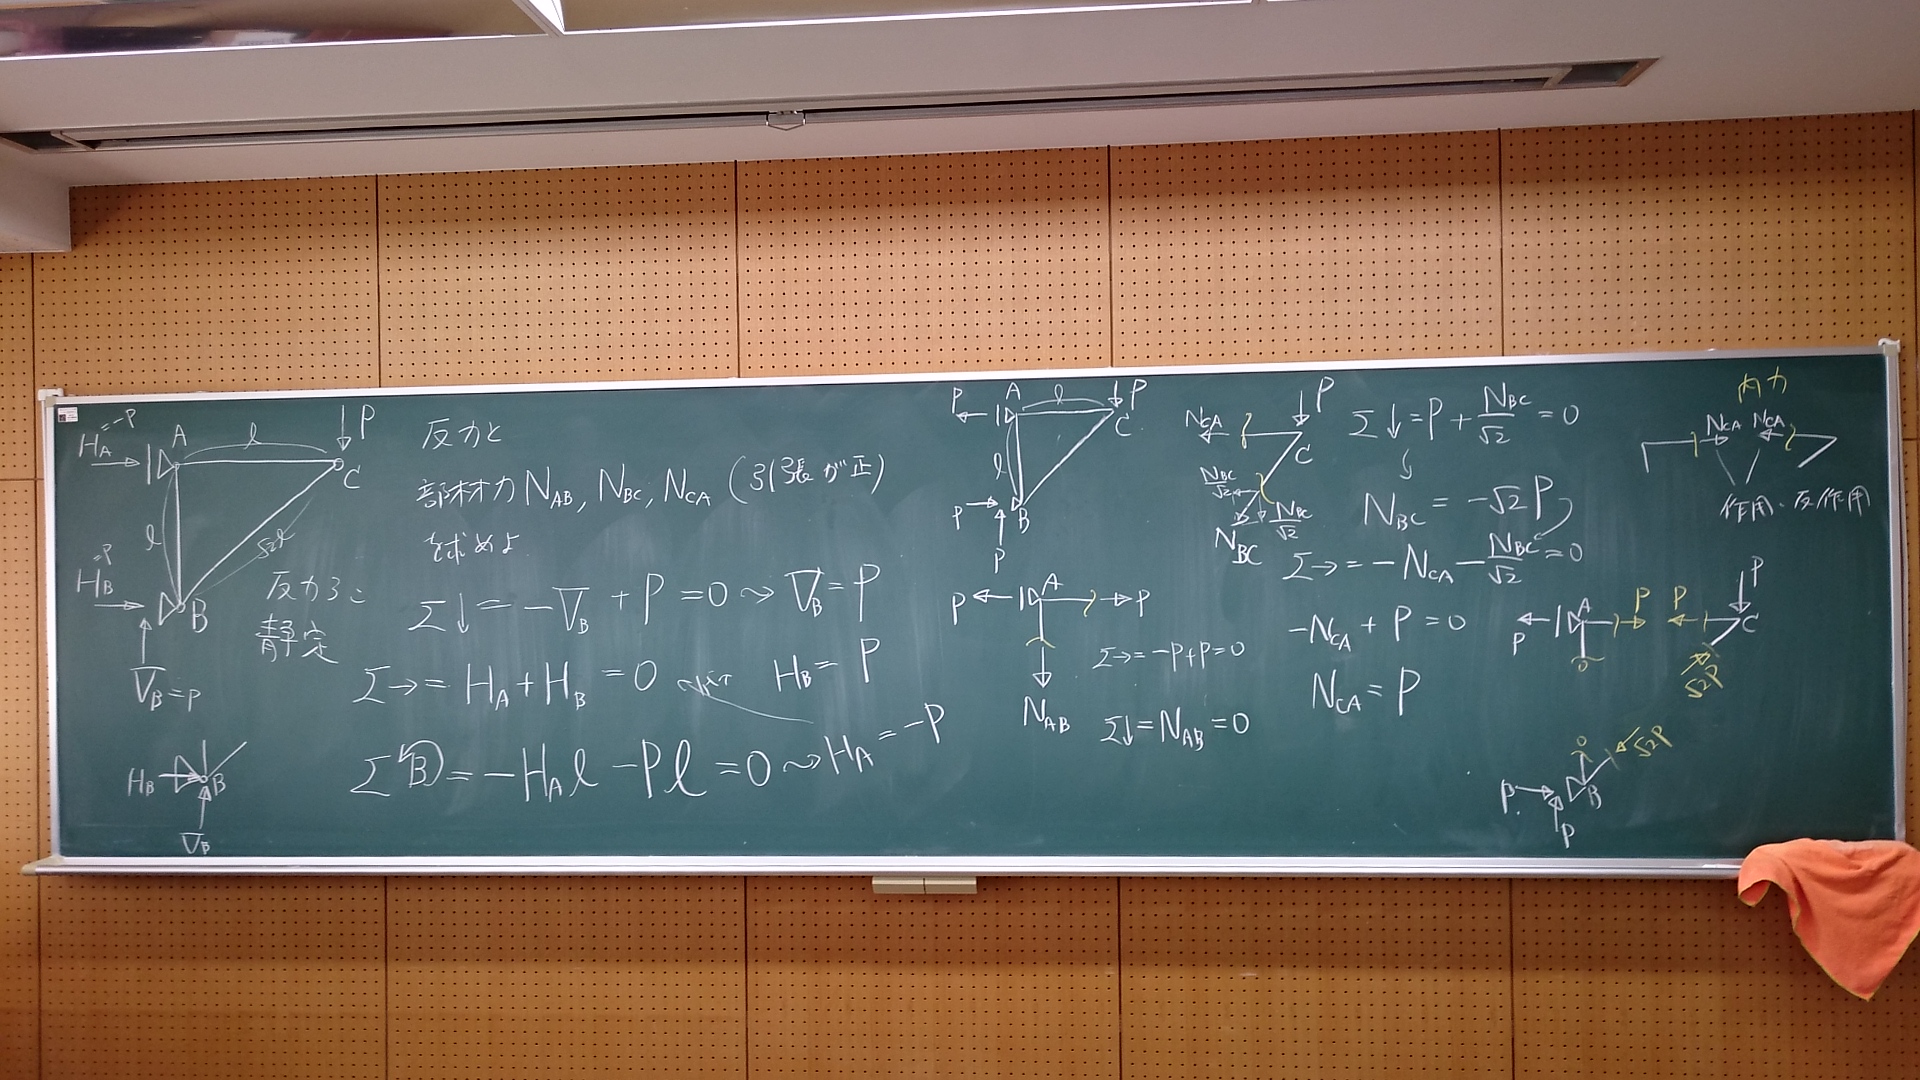 H_A =-P
A
l
P
C
l
√2l
H_B =P
B
V_B=P
反力3:
静定
H_B
B
V_B
反力と
部材力 N_AB, N_BC, N_CA (引張が正)
を求めよ
Σ↓=-V_B+P=0 ⇝ V_B=P
Σ→=H_A+H_B=0
H_B=P
ΣB=-H_A l-Pl=0 ⇝ H_A=-P
P
A
l
P
C
l
P
B
P
P
A
P
N_AB
Σ→=-P+P=0
Σ↓=N_AB=0
N_CA
P
C
N_BC/√2
N_BC/√2
N_BC
Σ↓=P+N_BC/√2=0
N_BC=-√2P
Σ→=-N_CA-N_BC/√2=0
-N_CA+P=0
N_CA=P
内力
N_CA
N_CA
作用・反作用
P
A
P
0
P
P
C
√2P
0
√2P
P
B
P